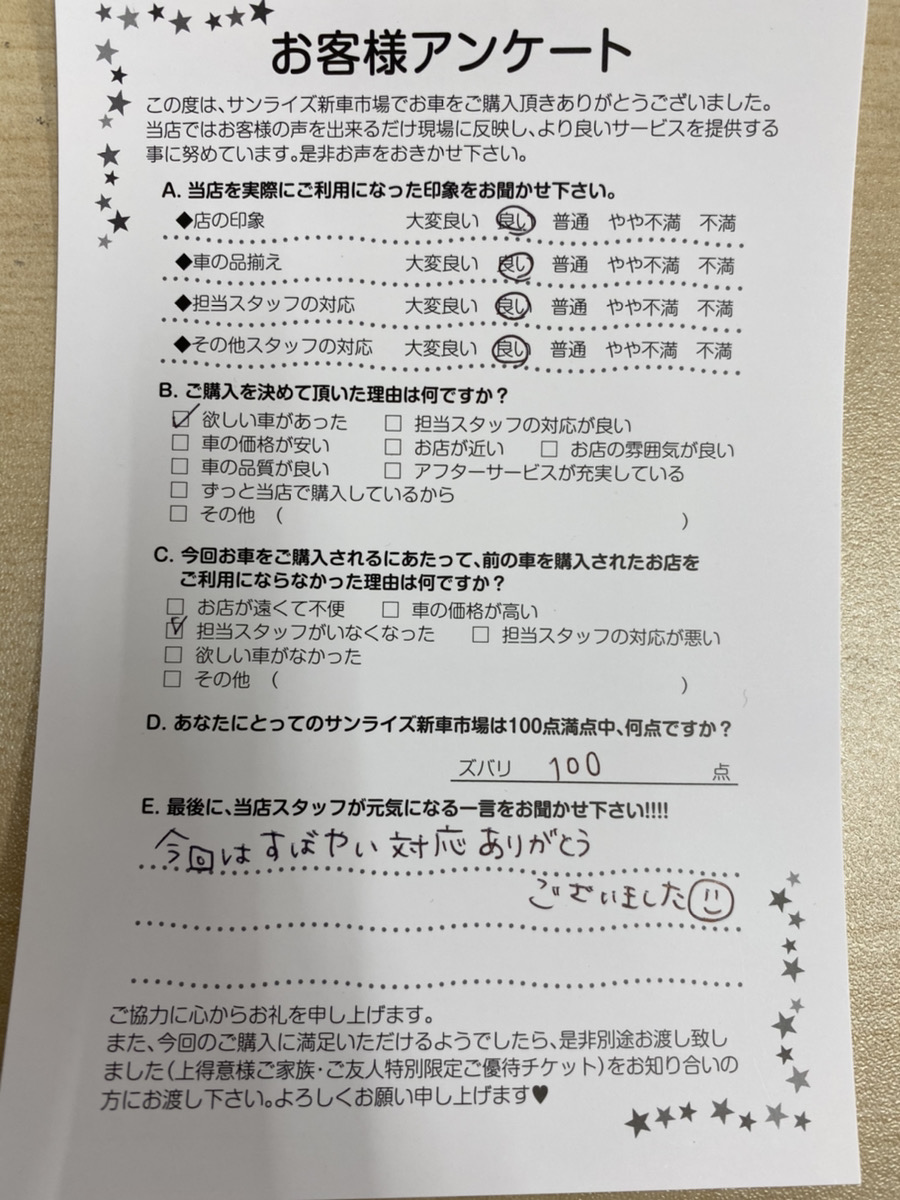 お客様アンケート
この度は、サンライズ新車市場でお車をご購入頂きありがとうございました。
当店ではお客様の声を出来るだけ現場に反映し、より良いサービスを提供する
事に努めています。是非お声をおきかせ下さい。
A. 当店を実際にご利用になった印象をお聞かせ下さい。
◆店の印象 大変良い 良い 普通 やや不満 不満
◆車の品揃え 大変良い 良い 普通 やや不満 不満
◆担当スタッフの対応 大変良い 良い 普通 やや不満 不満
◆その他スタッフの対応 大変良い 良い 普通 やや不満 不満
B. ご購入を決めて頂いた理由は何ですか？
☑ 欲しい車があった □ 担当スタッフの対応が良い
□ 車の価格が安い □ お店が近い □ お店の雰囲気が良い
□ 車の品質が良い □ アフターサービスが充実している
□ ずっと当店で購入しているから
□ その他 ( )
C. 今回お車をご購入されるにあたって、前の車を購入されたお店を
ご利用にならなかった理由は何ですか？
□ お店が遠くて不便 □ 車の価格が高い
☑ 担当スタッフがいなくなった □ 担当スタッフの対応が悪い
□ 欲しい車がなかった
□ その他 ( )
D. あなたにとってのサンライズ新車市場は100点満点中、何点ですか？
ズバリ 100 点
E. 最後に、当店スタッフが元気になる一言をお聞かせ下さい!!!!
今回はすばやい対応ありがとう
ございました
ご協力に心からお礼を申し上げます。
また、今回のご購入に満足いただけるようでしたら、是非別途お渡し致し
ました(上得意様ご家族・ご友人特別限定ご優待チケット)をお知り合いの
方にお渡し下さい。よろしくお願い申し上げます♥